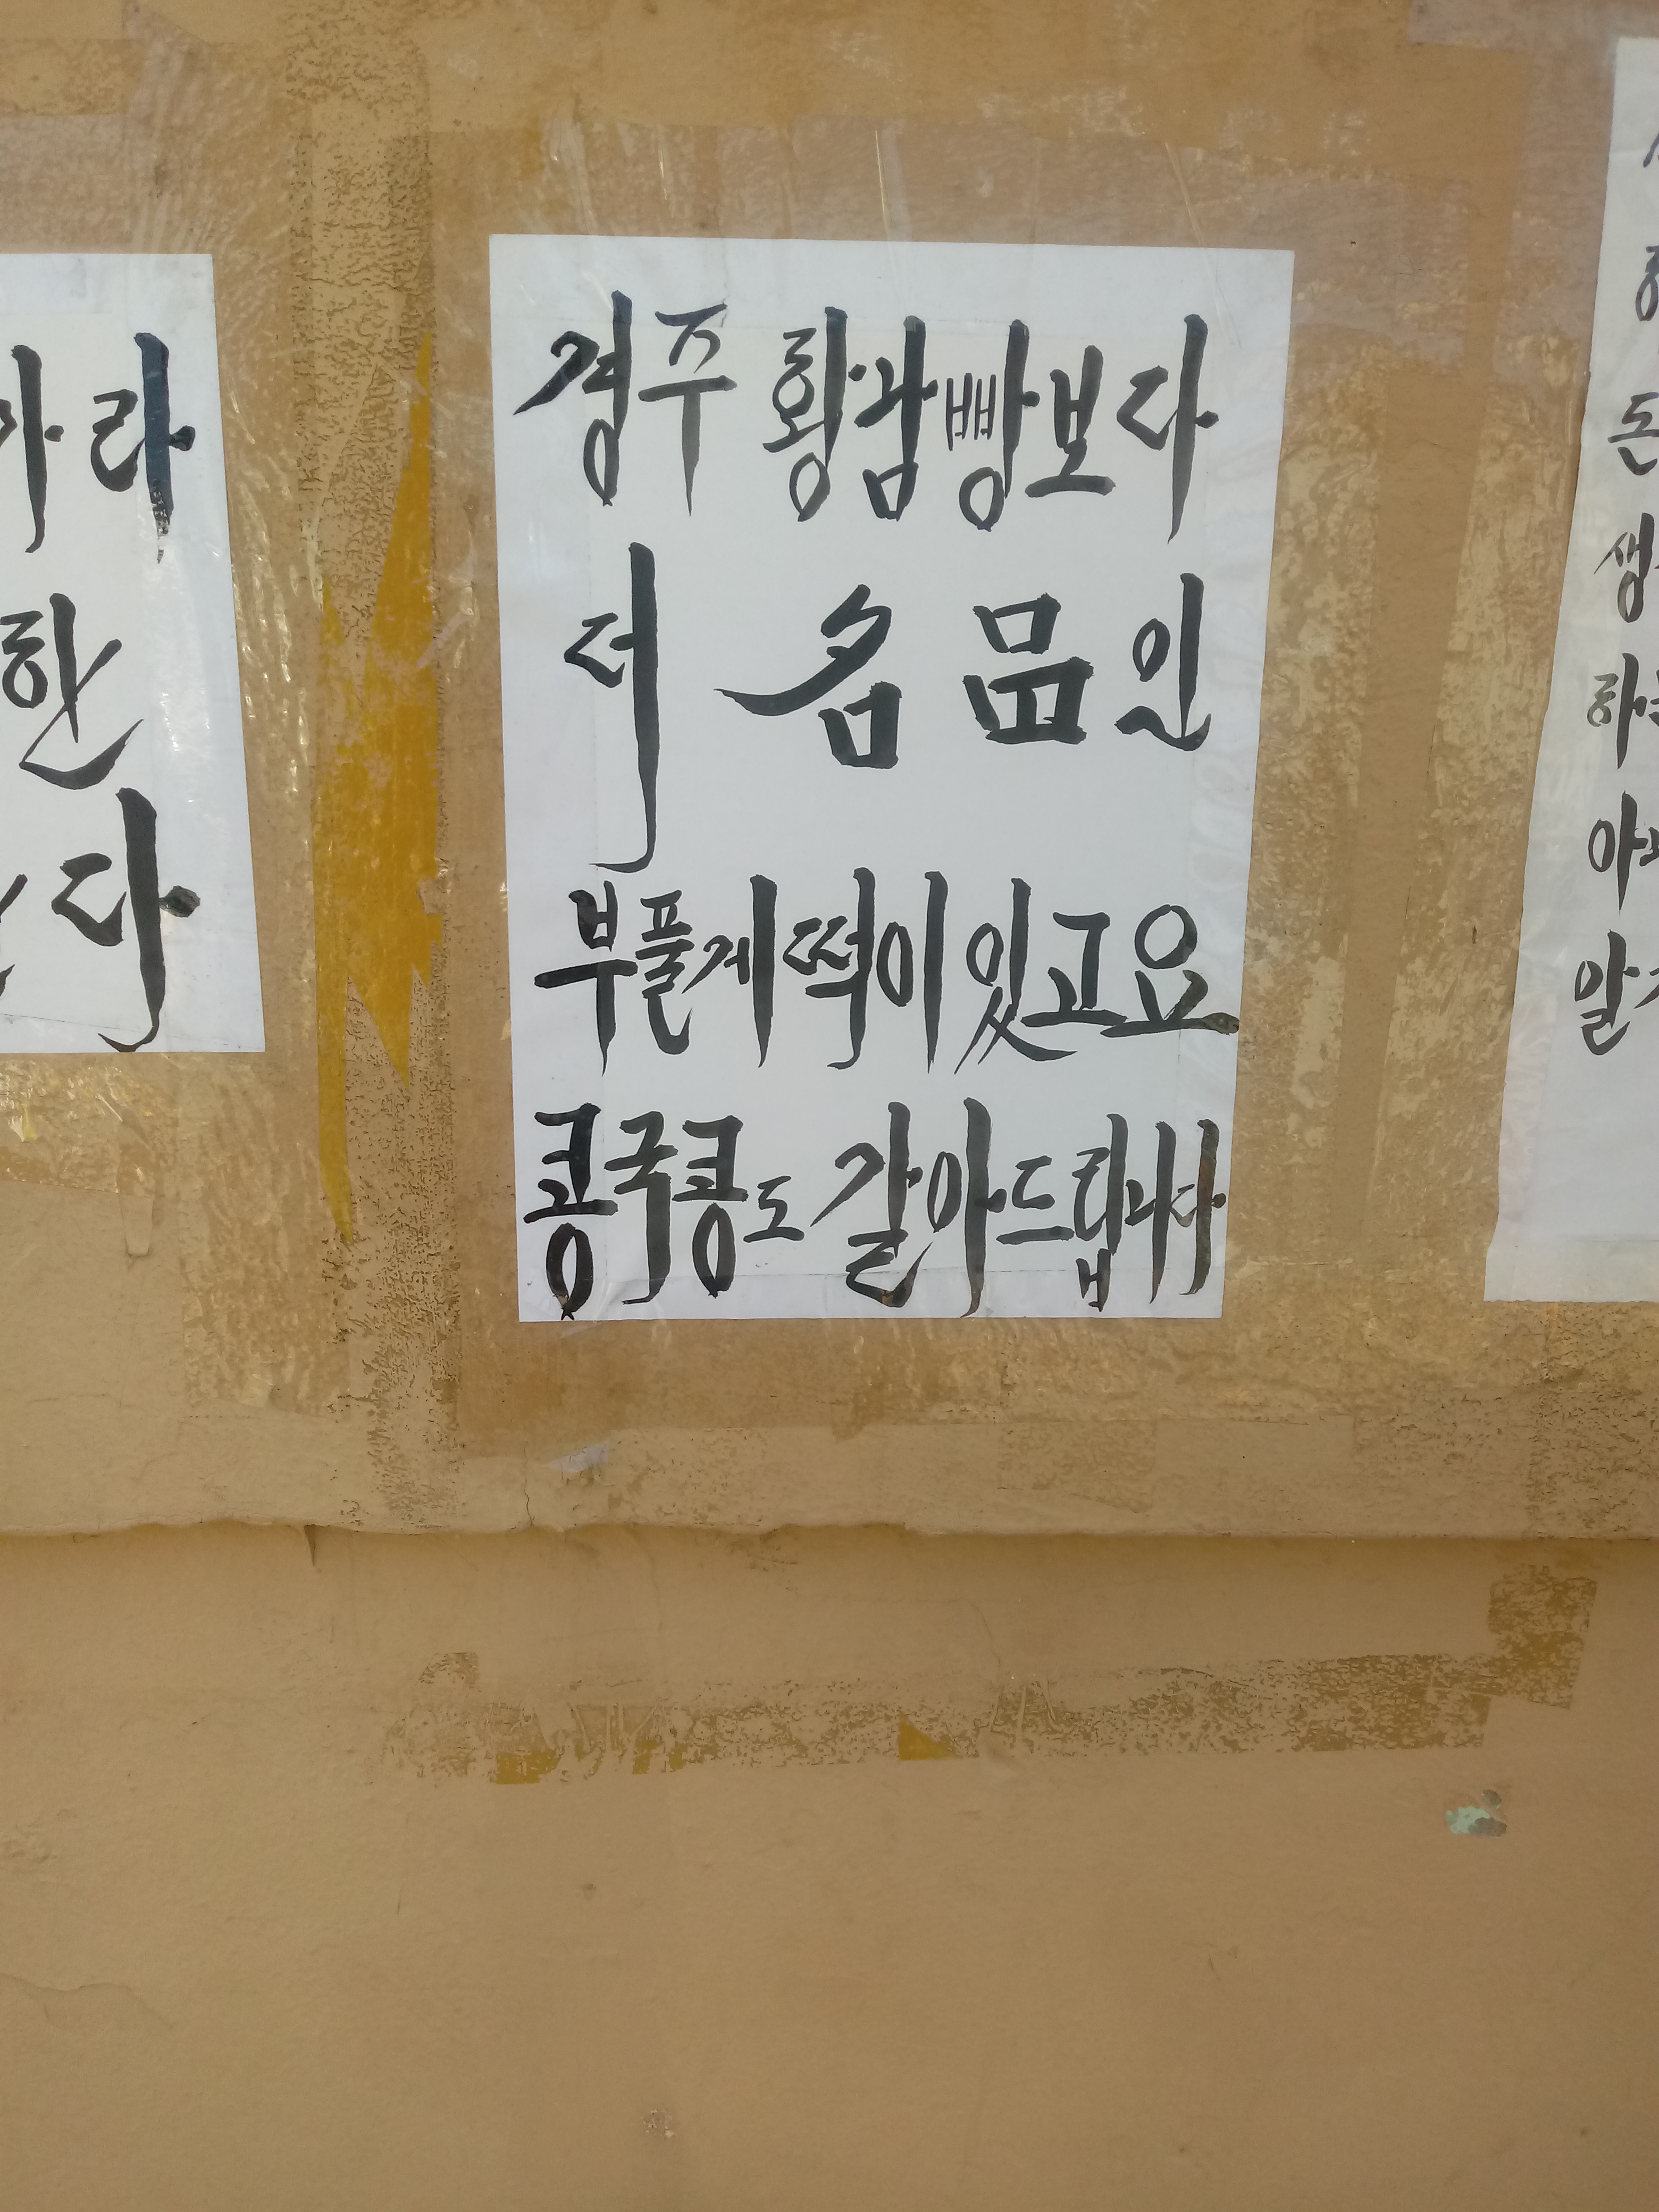 라
한
다
경주 황남빵보다
더 名品인
부풀게떡이있고요
콩국콩도 갈아드립니다
돈
생
하
아
말